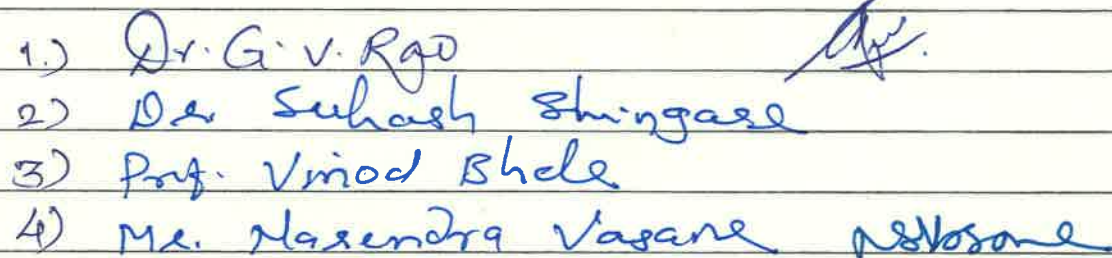 1.) Dr. G. V. Rao
2) Dr Suhash Shingare
3) Prof. Vinod Bhele
4) Mr. Narendra Vasane NSVasane